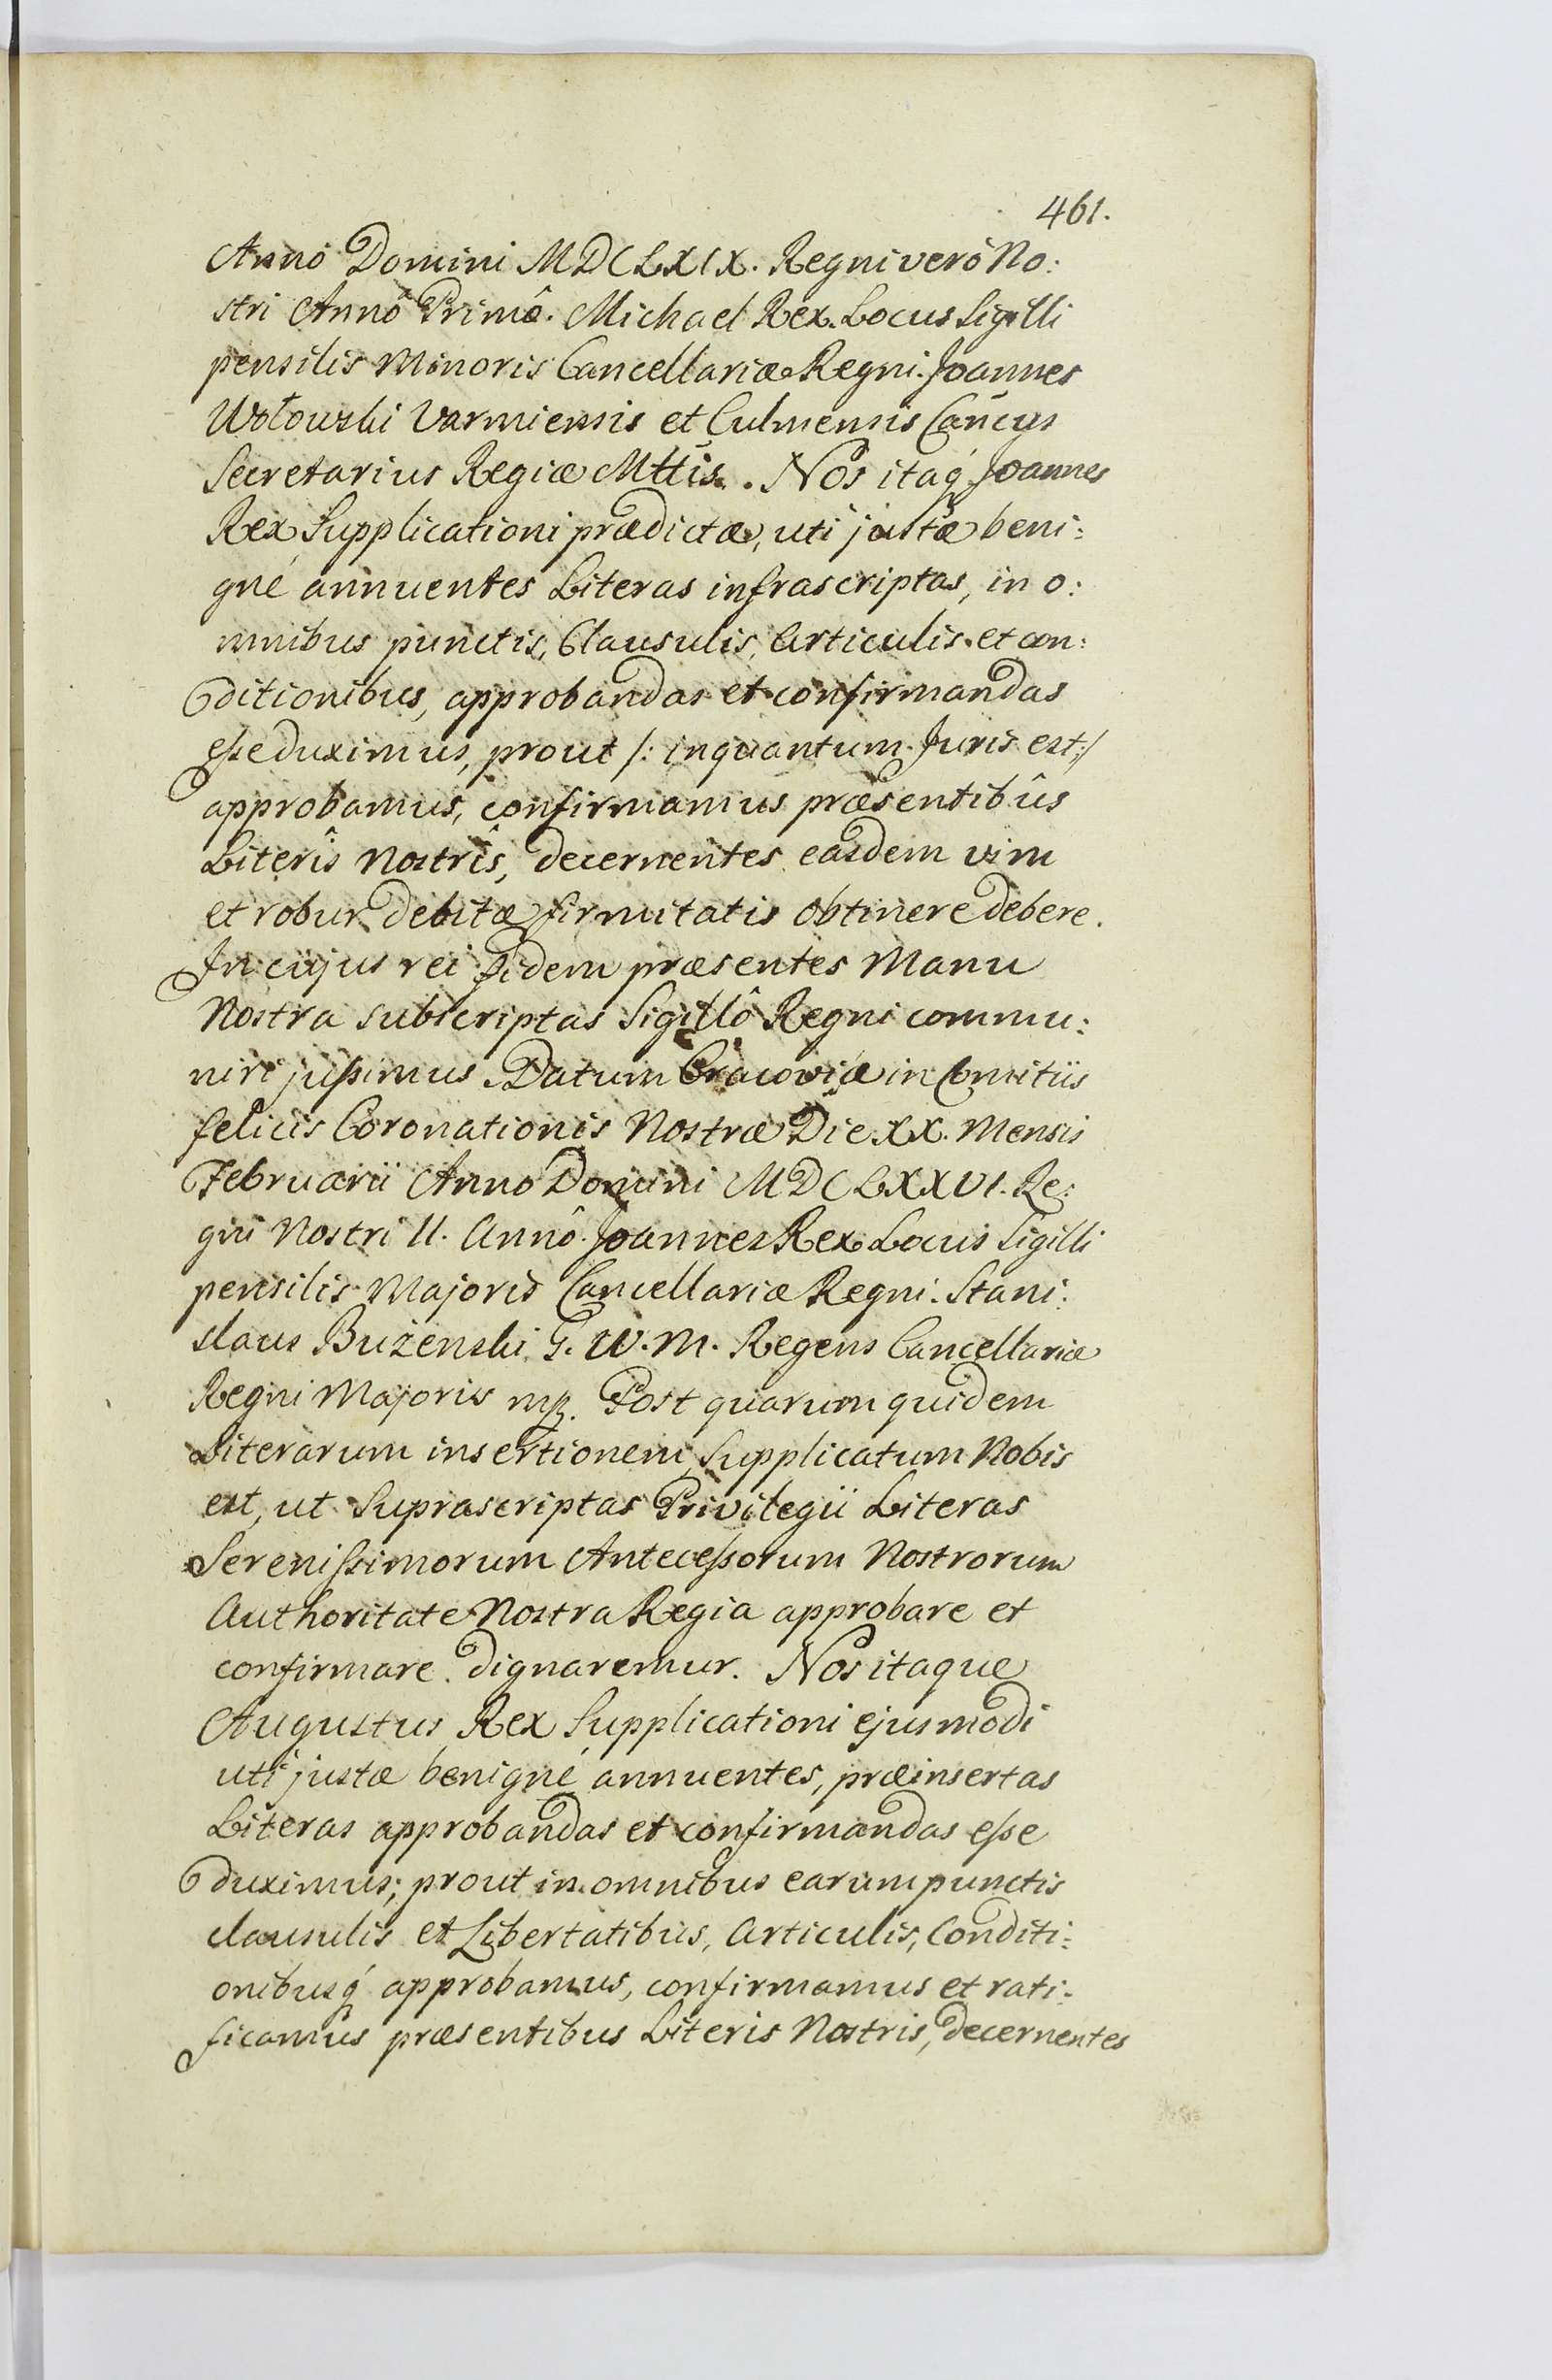 461.
Anno Domini MDCLXIX. Regni verò No:
stri Annô Primô. Michael Rex. Locus Sigilli
pensilis Minoris Cancellariæ Regni. Joannes
Wołowski Varmiensis et Culmensis Cancus
Secretarius Regiæ Mttis. Nos itaq́ Joannes
Rex Supplicationi prædictæ, uti justæ beni:
gné annuentes Literas infrascriptas, in o:
mnibus punctis, Clausulis, Articulis et con:
ditionibus, approbandas et confirmandas
eſse duximus, prout /: inquantum Juris est :/
approbamus, confirmamus præsentibûs
Literîs Nostrîs, decernentes easdem vim
et robur debitæ firmitatis obtinere debere.
In cujus rei fidem præsentes Manu
Nostra subscriptas Sigillô Regni commu:
niri juſsimus. Datum Cracoviæ in Comitiis
felicis Coronationis Nostræ Die XX. Mensis
Februarii Anno Domini MDCLXXVI. Re:
gni Nostri II. Annô. Joannes Rex Locus Sigilli
pensilis Majoris Cancellariæ Regni. Stani:
slaus Bużenski G. W. M. Regens Cancellariæ
Regni Majoris mp. Post quarum quidem
Literarum insertionem, Supplicatum Nobis
est, ut Suprascriptas Privilegii Literas
Sereniſsimorum Anteceſsorum Nostrorum
Authoritate Nostra Regia approbare et
confirmare dignaremur. Nos itaque
Augustus Rex Supplicationi ejusmodi
uti justæ benigné annuentes, præinsertas
Literas approbandas et confirmandas eſse
duximus; prout in omnibus earum punctis
clausulis et Libertatibus, Articulis, Conditi:
onibusq́ approbamus, confirmamus et rati:
ficamus præsentibus Literis Nostris, decernentes